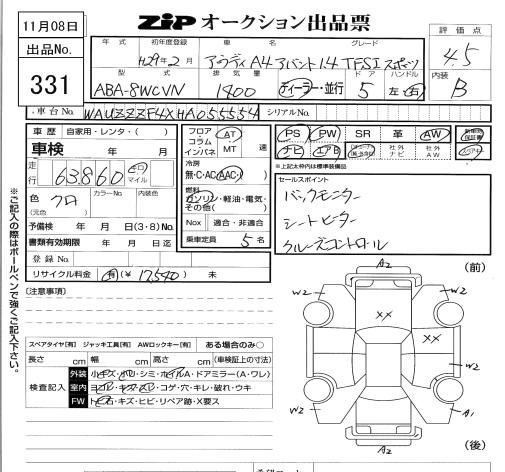 11月08日
ZIP オークション出品票
出品No.
331
評価点
4.5
内装
B
年式 初年度登録 車名 グレード
H29年2月 アウディA4アバント1.4 TFSIスポーツ
型式 排気量 ドア ハンドル
ABA-8WCVN 1400 ディーラー・並行 5 左・右
車台No. WAUZZZF4XHA055554 シリアルNo.
車歴 自家用・レンタ・( )
車検 年 月
走行 63,860 キロ マイル
色 クロ カラーNo. 内装色
(元色)
予備検 年 月 日(3・8)No.
書類有効期限 年 月 日迄
登録No.
リサイクル料金 有(¥ 17,540 ) 未
フロア コラム インパネ AT MT 速
冷房
無・C・AC・AAC・(
燃料
ガソリン・軽油・電気・その他( )
Nox 適合・非適合
乗車定員 5 名
PS PW SR 革 AW
ナビ 社外ナビ 社外AW
※上記太枠内は標準装備品
セールスポイント
バックモニター
シートヒーター
クルーズコントロール
(注意事項)
スペアタイヤ[有] ジャッキ工具[有] AWロックキー[有] ある場合のみ○
長さ cm 幅 cm 高さ cm (車検証上の寸法)
検査記入
外装 小キズ・小凹・シミ・ホイルA・ドアミラー(A・ワレ)
室内 ヨゴレ・キズ・スレ・コゲ・穴・キレ・破れ・ウキ
FW トビ石・キズ・ヒビ・リペア跡・X要ス
※ご記入の際はボールペンで強くご記入下さい。
A2
(前)
W2
W2
XX
XX
W2
W2
A1
A2
(後)